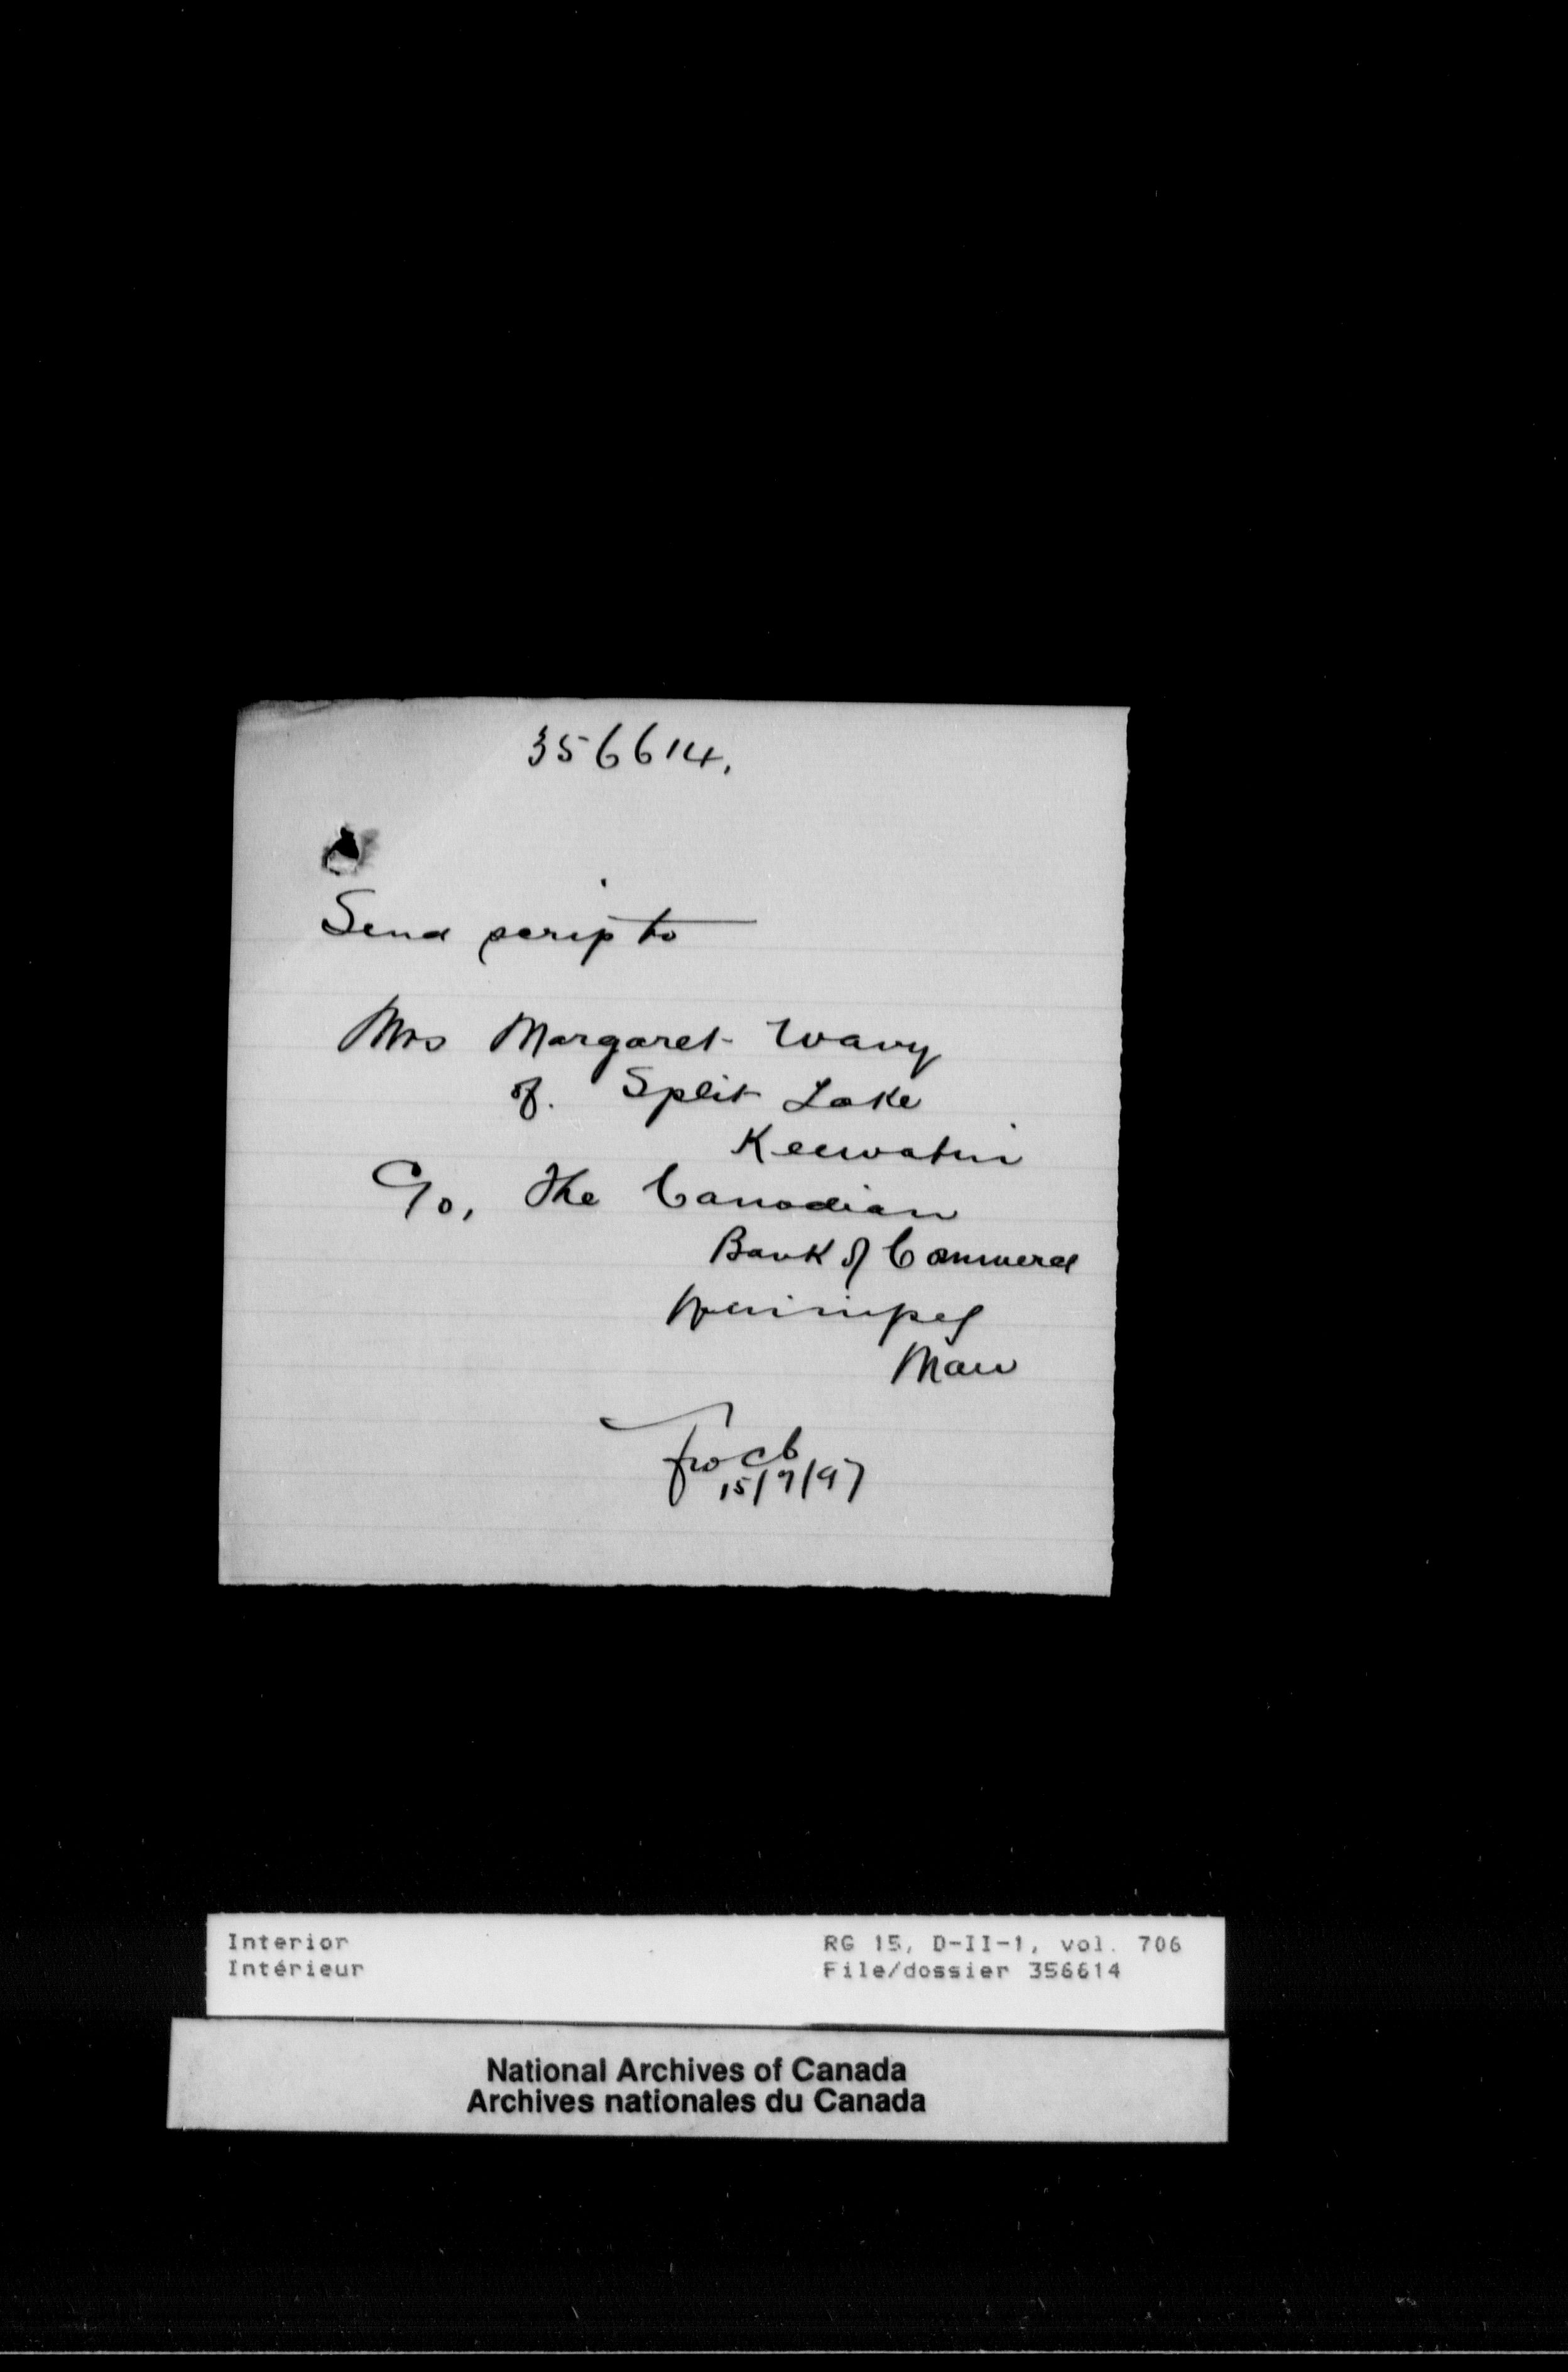 356614.
Send scrip to
Mrs Margaret Wavy
of. Split Lake
Keewatin
C/o, The Canadian
Bank of Commerce
Winnipeg
Man
15/7/97
Interior
Intérieur
RG 15, D-II-1, vol. 706
File/dossier 356614
National Archives of Canada
Archives nationales du Canada